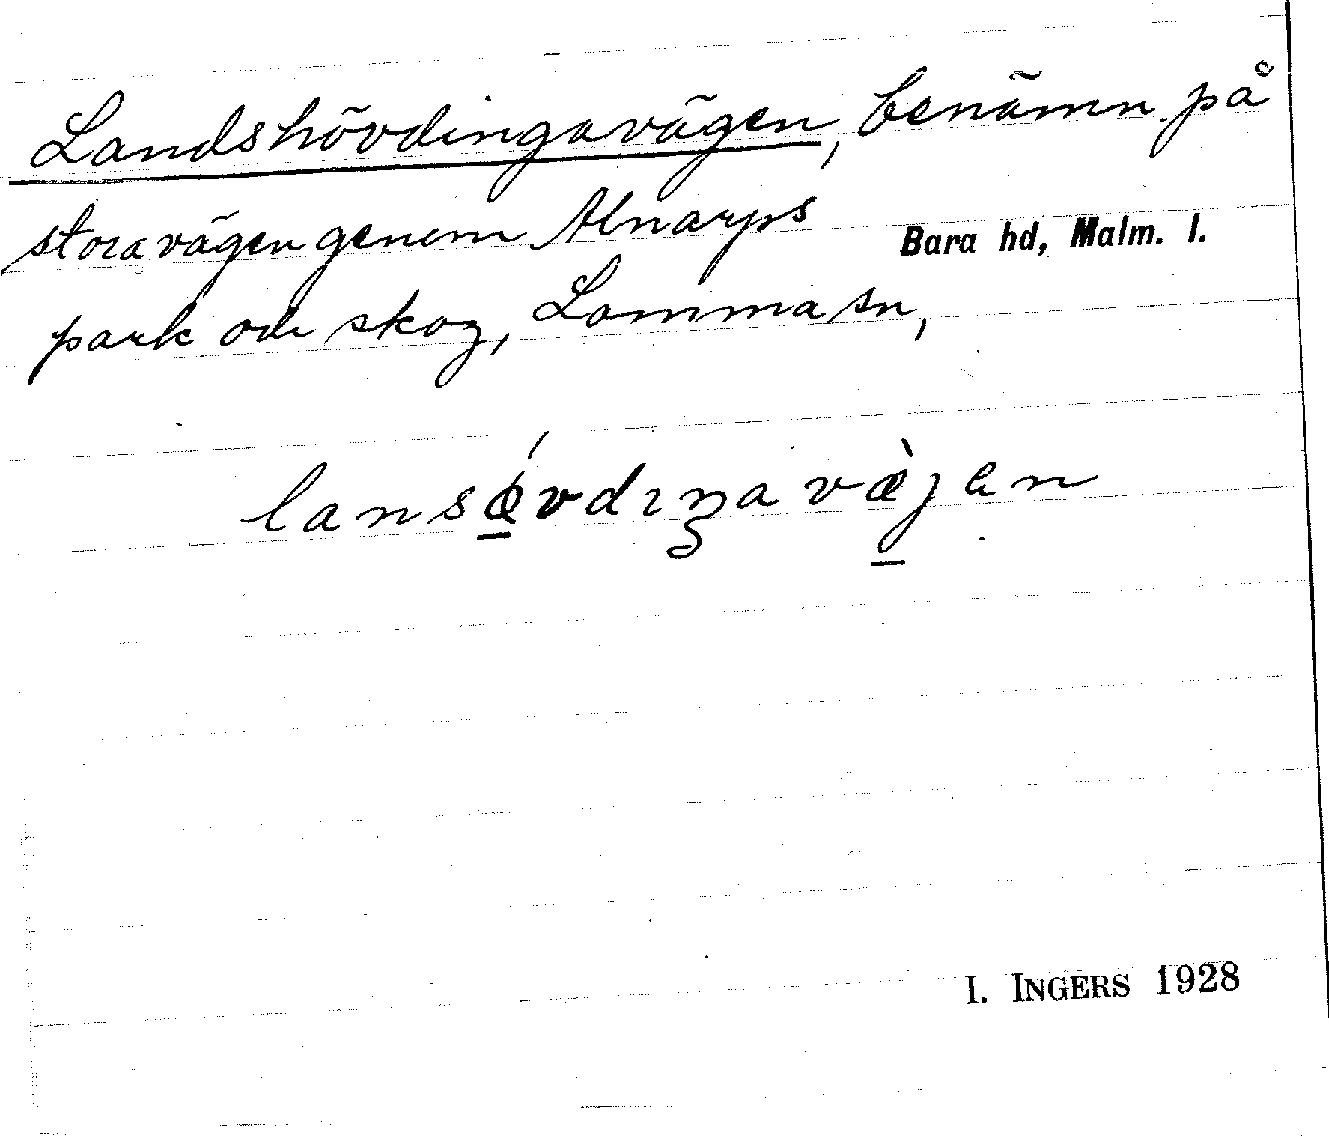 Landshövdingavägen, benämn. på
stora vägen genom Alnarps
Bara hd, Malm. l.
park och skog, Lomma sn,
lansǿvdiŋavæ̀jen
I. INGERS 1928